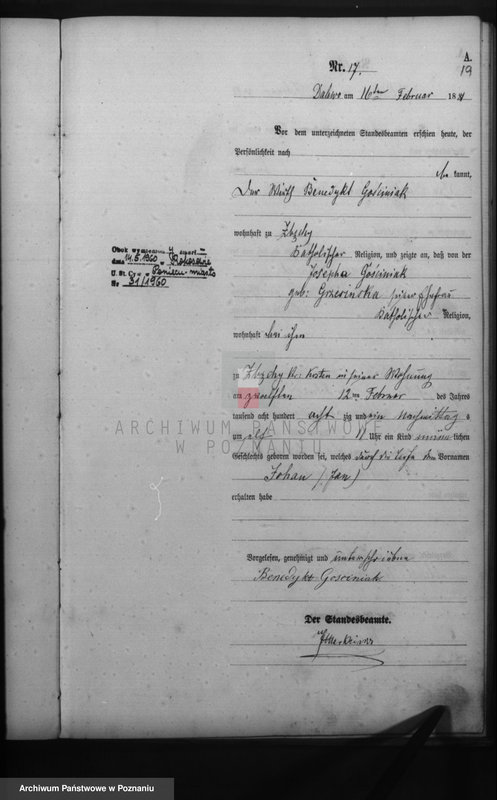 A.
19
Nr. 17.
Dalewo am 16ten Februar 1881
Vor dem unterzeichneten Standesbeamten erschien heute, der
Persönlichkeit nach
be kannt,
Der Wirth Benedykt Gościniak
wohnhaft zu Zbzchy
katholischer Religion, und zeigte an, daß von der
Josepha Gościniak
geb: seiner Ehefrau
katholischer Religion,
wohnhaft bei ihm
zu Zbzchy Kr: Kosten in seiner Wohnung
am zwölften 12ten Februar des Jahres
tausend acht hundert acht zig und ein Nachmittag s
um elf 11 Uhr ein Kind männ lichen
Geschlechts geboren worden sei, welches durch die Taufe den Vornamen
Johan / Jan /
erhalten habe
Vorgelesen, genehmigt und unterschrieben
Benedykt Gosciniak
Der Standesbeamte.
dnia 14.5.1960
U.S.C. Poniec-miasto
Nr 31/1960
ARCHIWUM PAŃSTWOWE
W POZNANIU
Archiwum Państwowe w Poznaniu